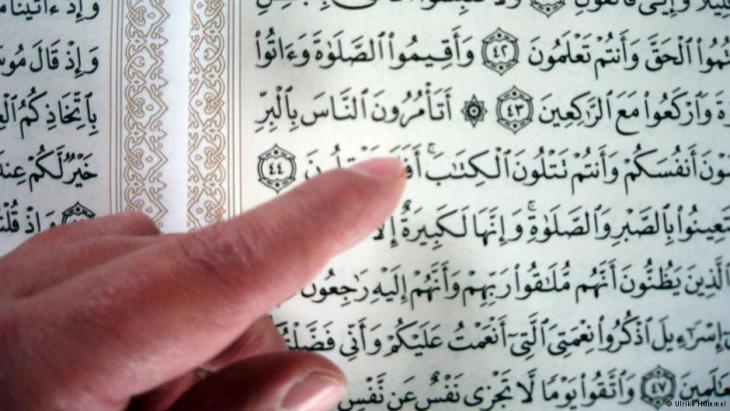 قَلِيلًا وَإِيَّٰىَ فَٱتَّقُونِ
تُمُوا۟ ٱلْحَقَّ وَأَنتُمْ تَعْلَمُونَ ٤٢ وَأَقِيمُوا۟ ٱلصَّلَوٰةَ وَءَاتُوا۟
ةَ وَٱرْكَعُوا۟ مَعَ ٱلرَّٰكِعِينَ ٤٣ ۞ أَتَأْمُرُونَ ٱلنَّاسَ بِٱلْبِرِّ
سَوْنَ أَنفُسَكُمْ وَأَنتُمْ تَتْلُونَ ٱلْكِتَٰبَۚ ٤٤
تَعِينُوا۟ بِٱلصَّبْرِ وَٱلصَّلَوٰةِۚ وَإِنَّهَا لَكَبِيرَةٌ
ٱلَّذِينَ يَظُنُّونَ أَنَّهُم مُّلَٰقُوا۟ رَبِّهِمْ وَأَنَّهُمْ إِلَيْهِ رَٰجِعُونَ
إِسْرَٰٓءِيلَ ٱذْكُرُوا۟ نِعْمَتِىَ ٱلَّتِىٓ أَنْعَمْتُ عَلَيْكُمْ وَأَنِّى فَضَّلْتُ
عَٰلَمِينَ ٤٧ وَٱتَّقُوا۟ يَوْمًا لَّا تَجْزِى نَفْسٌ عَن نَّفْسٍ
وَإِذْ ءَاتَيْنَا
وَإِذْ قَالَ مُوسَ
بِٱتِّخَاذِكُمُ ٱلْعِ
خَيْرٌ لَّكُمْ عِندَ
وَإِذْ قُلْتُ
© Ulrike Hummel